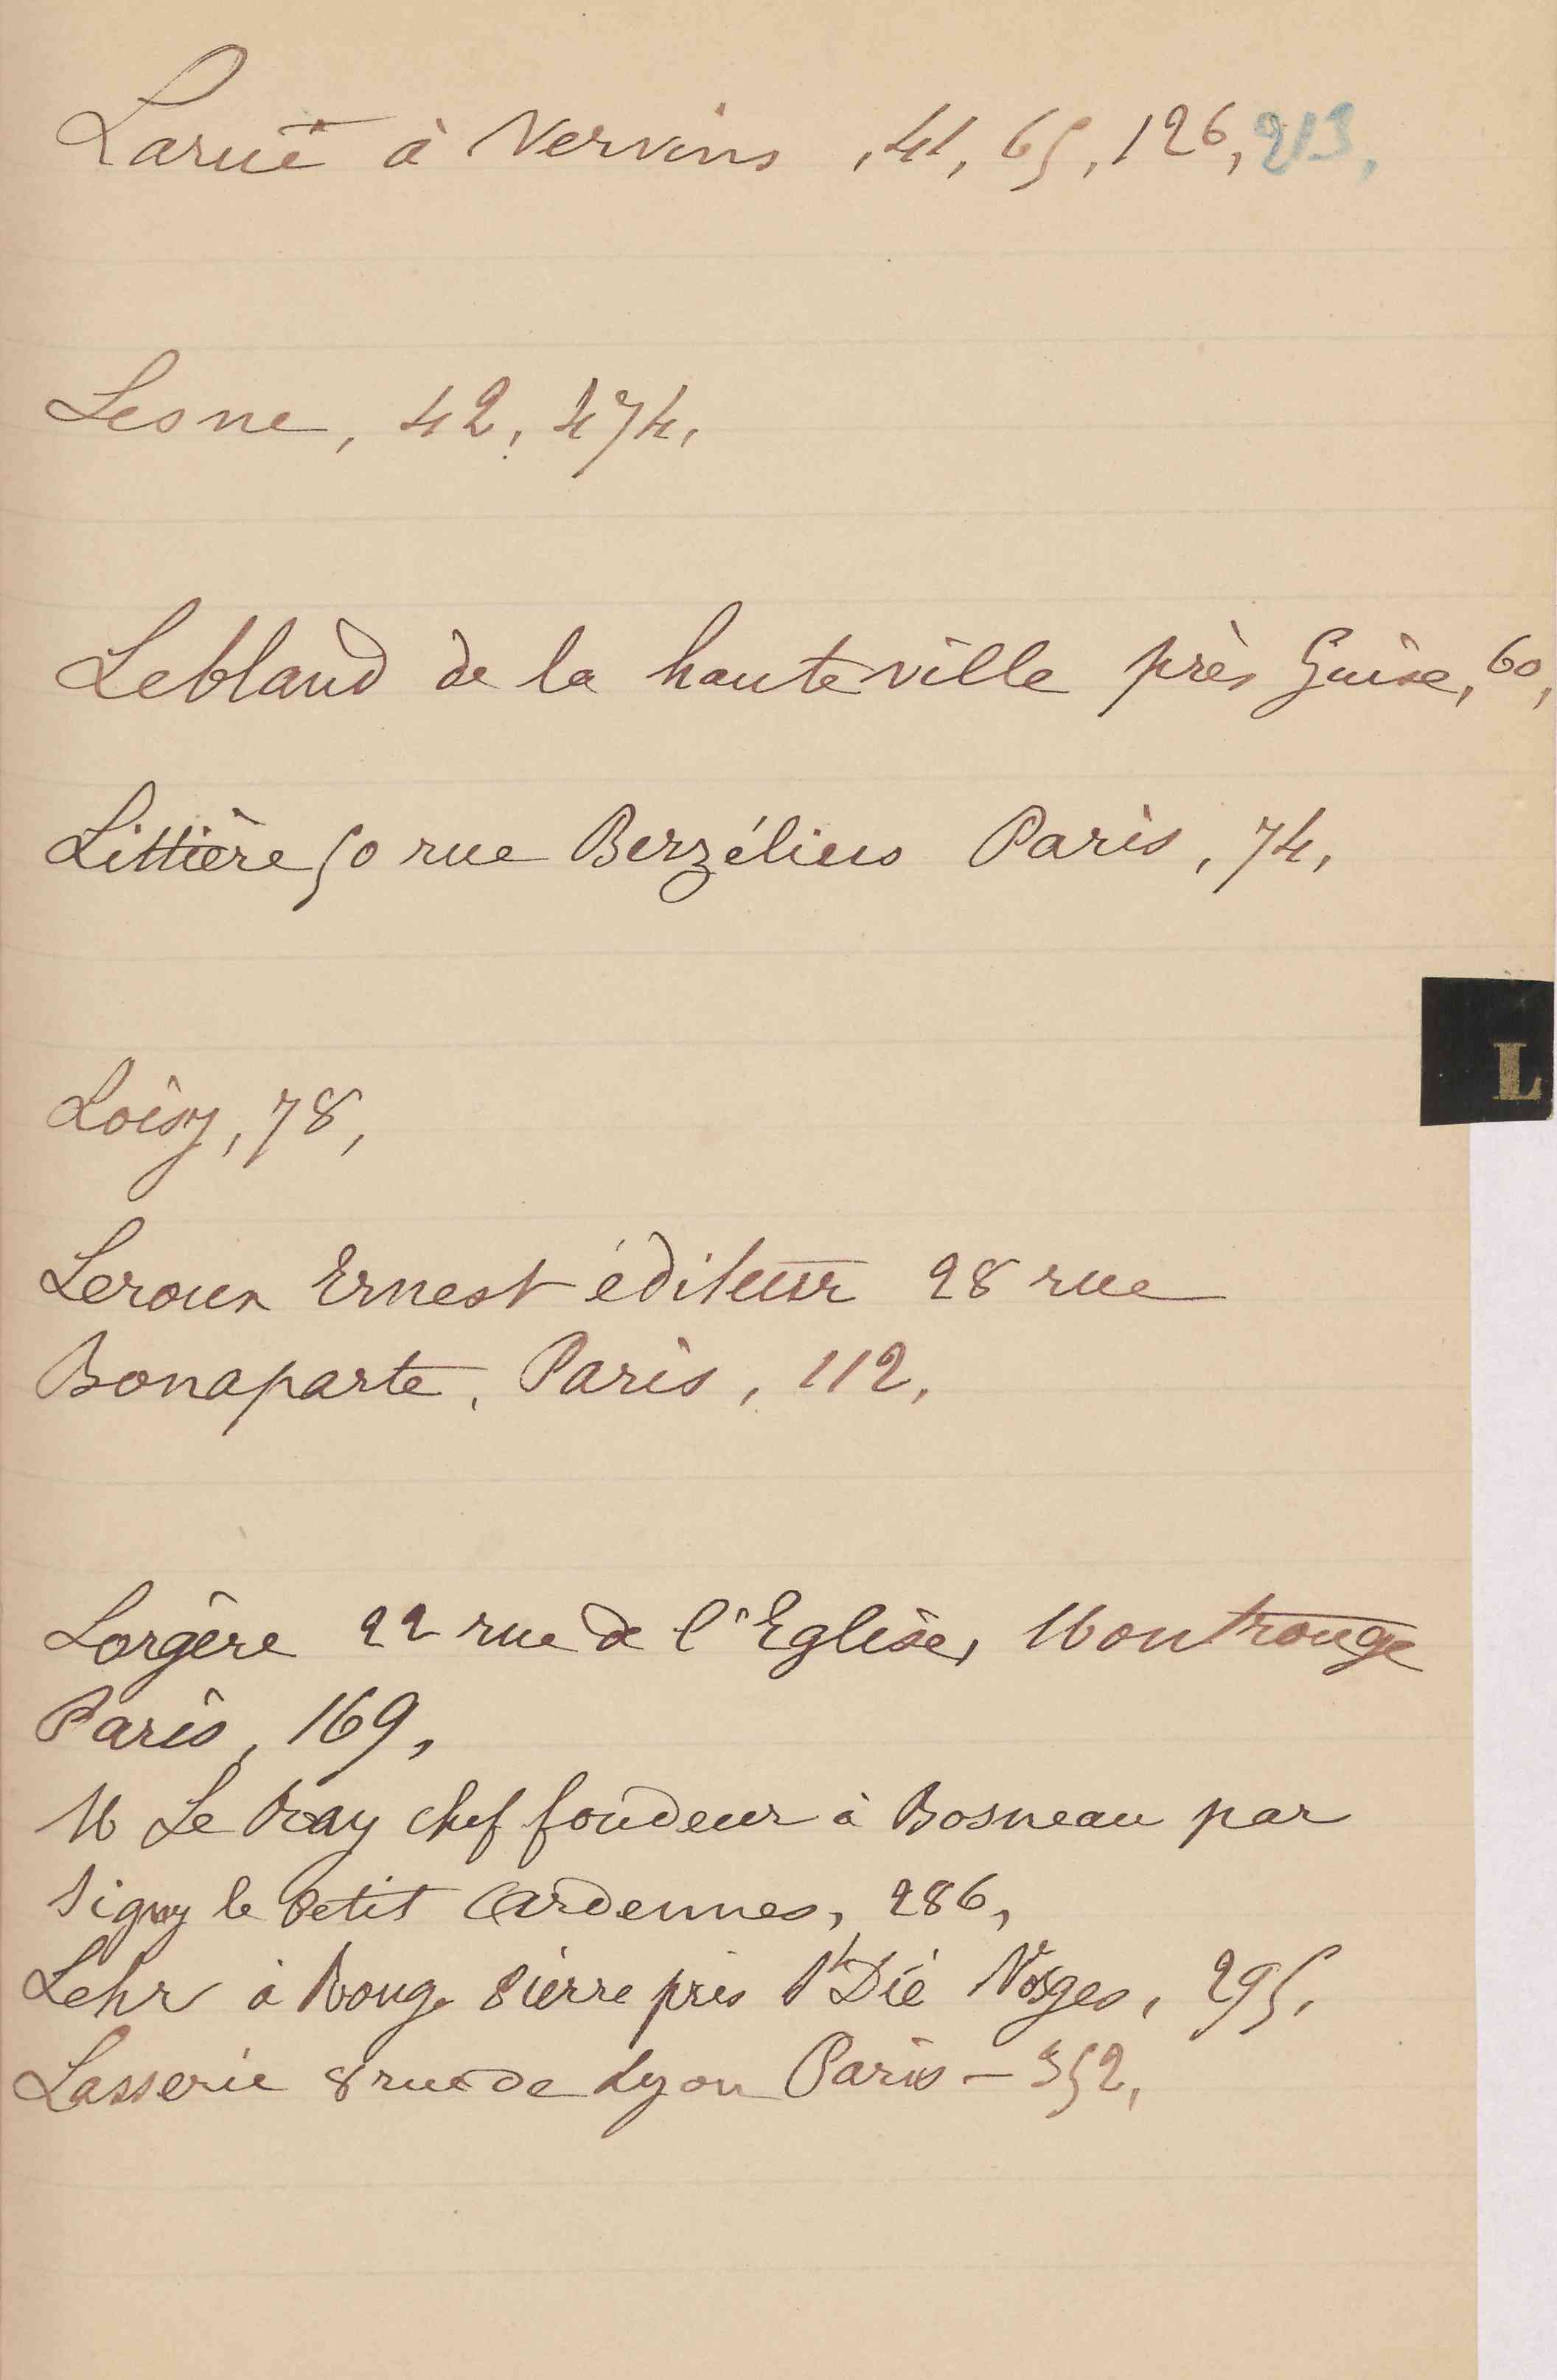 Larue à Vervins, 41, 65, 126, 213,
Lesne, 42, 474,
Lebland de la hauteville près Guise, 60,
Littière 50 rue Berzélius Paris, 74,
L
Loisy, 78,
Leroux Ernest éditeur 28 rue
Bonaparte, Paris, 112,
Lorgère 22 rue de l'Eglise, Montrouge
Paris, 169,
M Le Bray chef fondeur à Bosneau par
Signy le Petit Ardennes, 286,
Lehr à Rouge Pierre près St Dié Vosges, 295,
Lasserie 8 rue de Lyon Paris – 352,